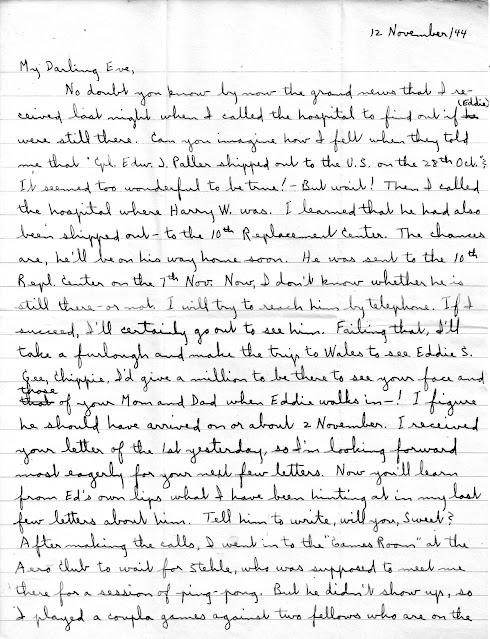 12 November/44
My Darling Eve,
No doubt you know by now the grand news that I re-
ceived last night when I called the hospital to find out if he (Eddie)
were still there. Can you imagine how I felt when they told
me that "Cpl. Edw. J. Paller shipped out to the U.S. on the 28th Oct."?
It seemed too wonderful to be true! - But wait! Then I called
the hospital where Harry W. was. I learned that he had also
been shipped out - to the 10th Replacement Center. The chances
are, he'll be on his way home soon. He was sent to the 10th
Repl. Center on the 7th Nov. Now, I don't know whether he is
still there - or not. I will try to reach him by telephone. If I
succeed, I'll certainly go out to see him. Failing that, I'll
take a furlough and make the trip to Wales to see Eddie S.
Gee, Chippie, I'd give a million to be there to see your face and
that those of your Mom and Dad when Eddie walks in -! I figure
he should have arrived on or about 2 November. I received
your letter of the 1st yesterday, so I'm looking forward
most eagerly for your next few letters. Now you'll learn
from Ed's own lips what I have been hinting at in my last
few letters about him. Tell him to write, will you, Sweet?
After making the calls, I went in to the "Games Room" at the
Aero Club to wait for Stehle, who was supposed to meet me
there for a session of ping-pong. But he didn't show up, so
I played a coupla games against two fellows who are on the